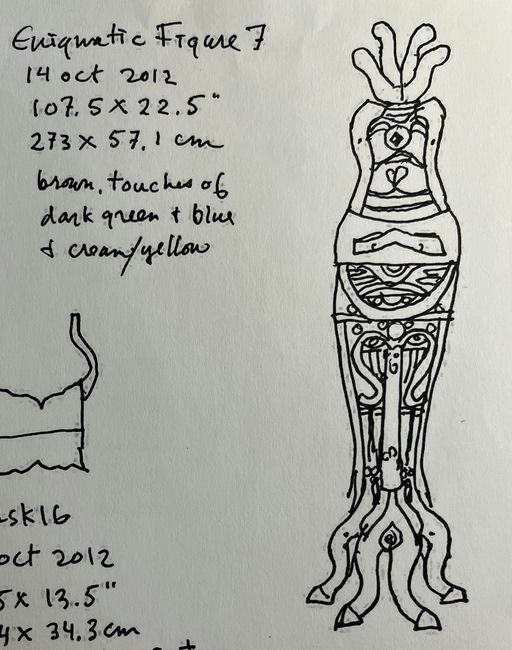 Enigmatic Figure 7
14 oct 2012
107.5 x 22.5"
273 x 57.1 cm
brown, touches of
dark green + blue
& cream/yellow
sk16
oct 2012
5 x 13.5"
4 x 34.3 cm